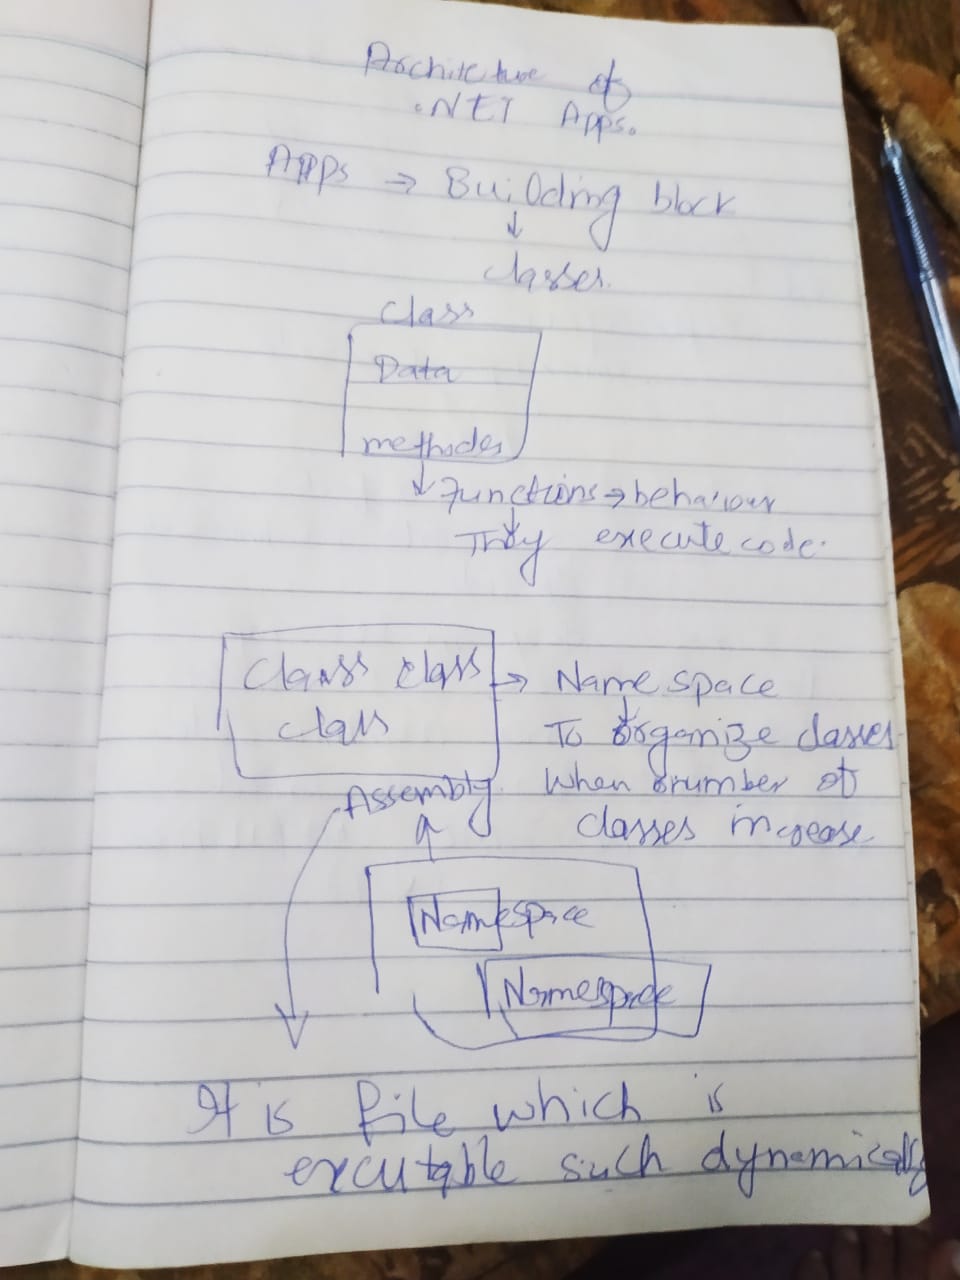 Architecture of
.NET Apps.
Apps → Building block
↓
classes.
class
Data
methodes
↓ Functions → behaviour
They execute code.
Class class → Name space
class
To organize classes
When number of
classes increase
Assembly
Namespace
Namespace
It is file which is
executable such dynamically